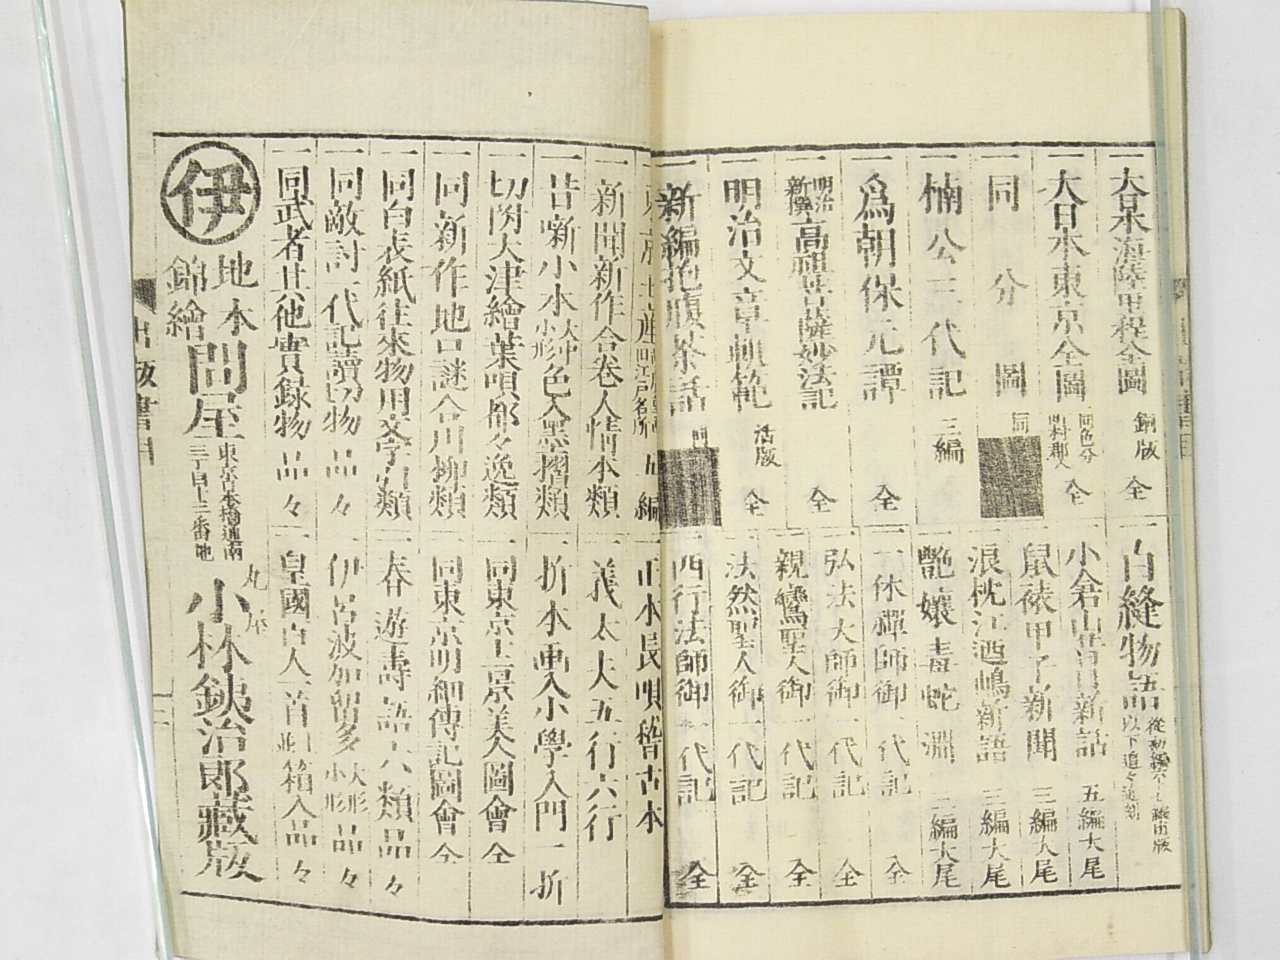 一大日本海陸里程全圖 銅版 全
一大日本東京全圖 同色分 全
一同分圖 同
一楠公三代記 三編
一爲朝保元譚 全
一明治新撰高祖菩薩妙法記 全
一明治文章軌範 活版 全
一新編
茶話
一白縫物語 以下追々近刻
小倉山青樹新話 五編大尾
鼠裱甲子新聞 三編大尾
浪枕江酒嶋新語 三編大尾
艶孃毒蛇淵 三編大尾
一休禪師御一代記 全
弘法大師御一代記 全
親鸞聖人御一代記 全
一法然聖人御一代記 全
一西行法師御一代記 全
一東京土産
一新聞新作合卷人情本類
一昔噺小本大中小形色入墨摺類
一切附大津繪葉唄都々逸類
一同新作地口謎合川柳類
一同白表紙往來物用文字引類
一同敵討一代記讀切物品々
一同武者其他實録物品々
正本長唄稽古本
一義太夫五行六行
一折本画入小學入門一折
一同東京土景美人圖會 全
一同東京明細傳記圖會 全
一春遊壽語六類品々
一伊呂波加留多大形小形品々
一皇國百人一首
箱入品々
伊
地本
錦繪
問屋
東京日本橋通南
三丁目十三番地
丸屋
小林鉄治郎藏版
出版書目